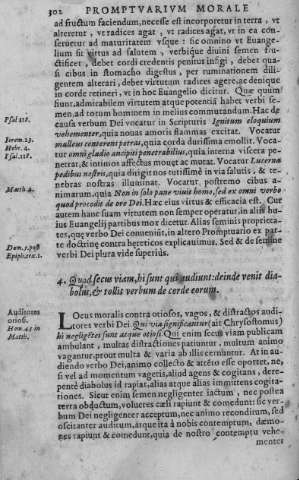 302 PROMPTVARIVM MORALE
ad fructum faciendum, necesse est incorporetur in terra, vt
alteretur, vt radices agat, vt radices agat, vt in ea con-
seruetur ad maturitatem vsque: sic omnino vt Euange-
lium sit virtus ad salutem, verbique diuini semen fru-
ctificet, debet cordi credentis penitus infigi, debet qua-
si cibus in stomacho digestus, per ruminationem dili-
gentem alterari, debet virtutum radices agere, ac denique
in corde retineri, vt in hoc Euangelio dicitur. Quæ quum
fiunt, admirabilem virtutem atque potentiã habet verbi se-
men, ad totum hominem in melius commutandum. Hac de
Psal 118. causa verbum Dei vocatur in Scripturis Ignitum eloquium
vehementer, quia nouas amoris flammas excitat. Vocatur
Ierem. 23. malleus conterens petras, quia corda durissima emollit. Vocatur
Hebr. 4. omni gladio ancipiti penetrabilius, quia interna viscera pe-
Psal. 118. netrat, & intimos affectus mouet ac mutat. Vocatur Lucerna
pedibus nostris, quia dirigit nos tutissimè in via salutis, & te-
nebras nostras illuminat. Vocatur postremo cibus a-
Matth 4. nimarum, quia Non in solo pane viuit homo, sed ex omni verbo
quod procedit de ore Dei. Hæc eius virtus & efficacia est. Cur
autem hanc suam virtutem non semper operatur, in alijs hu-
ius Euangelij partibus mox dicetur. Alias seminis proprieta-
tes, quæ verbo Dei conueniũt, in altero Promptuario ex par-
te doctrinæ contra hereticos explicauimus. Sed & de semine
verbi Dei plura vide superius.
4. Quod secus viam, hi sunt qui audiunt: deinde venit dia-
bolus, & tollit verbum de corde eorum.
Auditores LOcus moralis contra otiosos, vagos, & distractos audi-
otiosi. tores verbi Dei. Qui via significantur (ait Chrysostomus)
Hom. 45 in hi negligentes sunt atque otiosi Qui enim secus viam publicam
Matth. ambulant, multas distractiones patiuntur, multum animo
vagantur, prout multa & varia ab illis cernuntur. At in au-
diendo verbo Dei, animo collecto & attẽto esse oportet, ne,
si vel ad momentum vagetis, aliud agens & cogitans, dere-
pentè diabolus id rapiat, alia atque alias immittens cogita-
tiones. Sicut enim semen negligenter iactum, nec postea
terra obductum, volucres cæli rapiunt & comedunt: sic ver-
bum Dei negligenter acceptum, nec animo reconditum, sed
oscitanter auditum, atque ita à nobis contemptum, dæmo-
nes rapiunt & comedunt, quia de nostro contemptu vehe-
menter